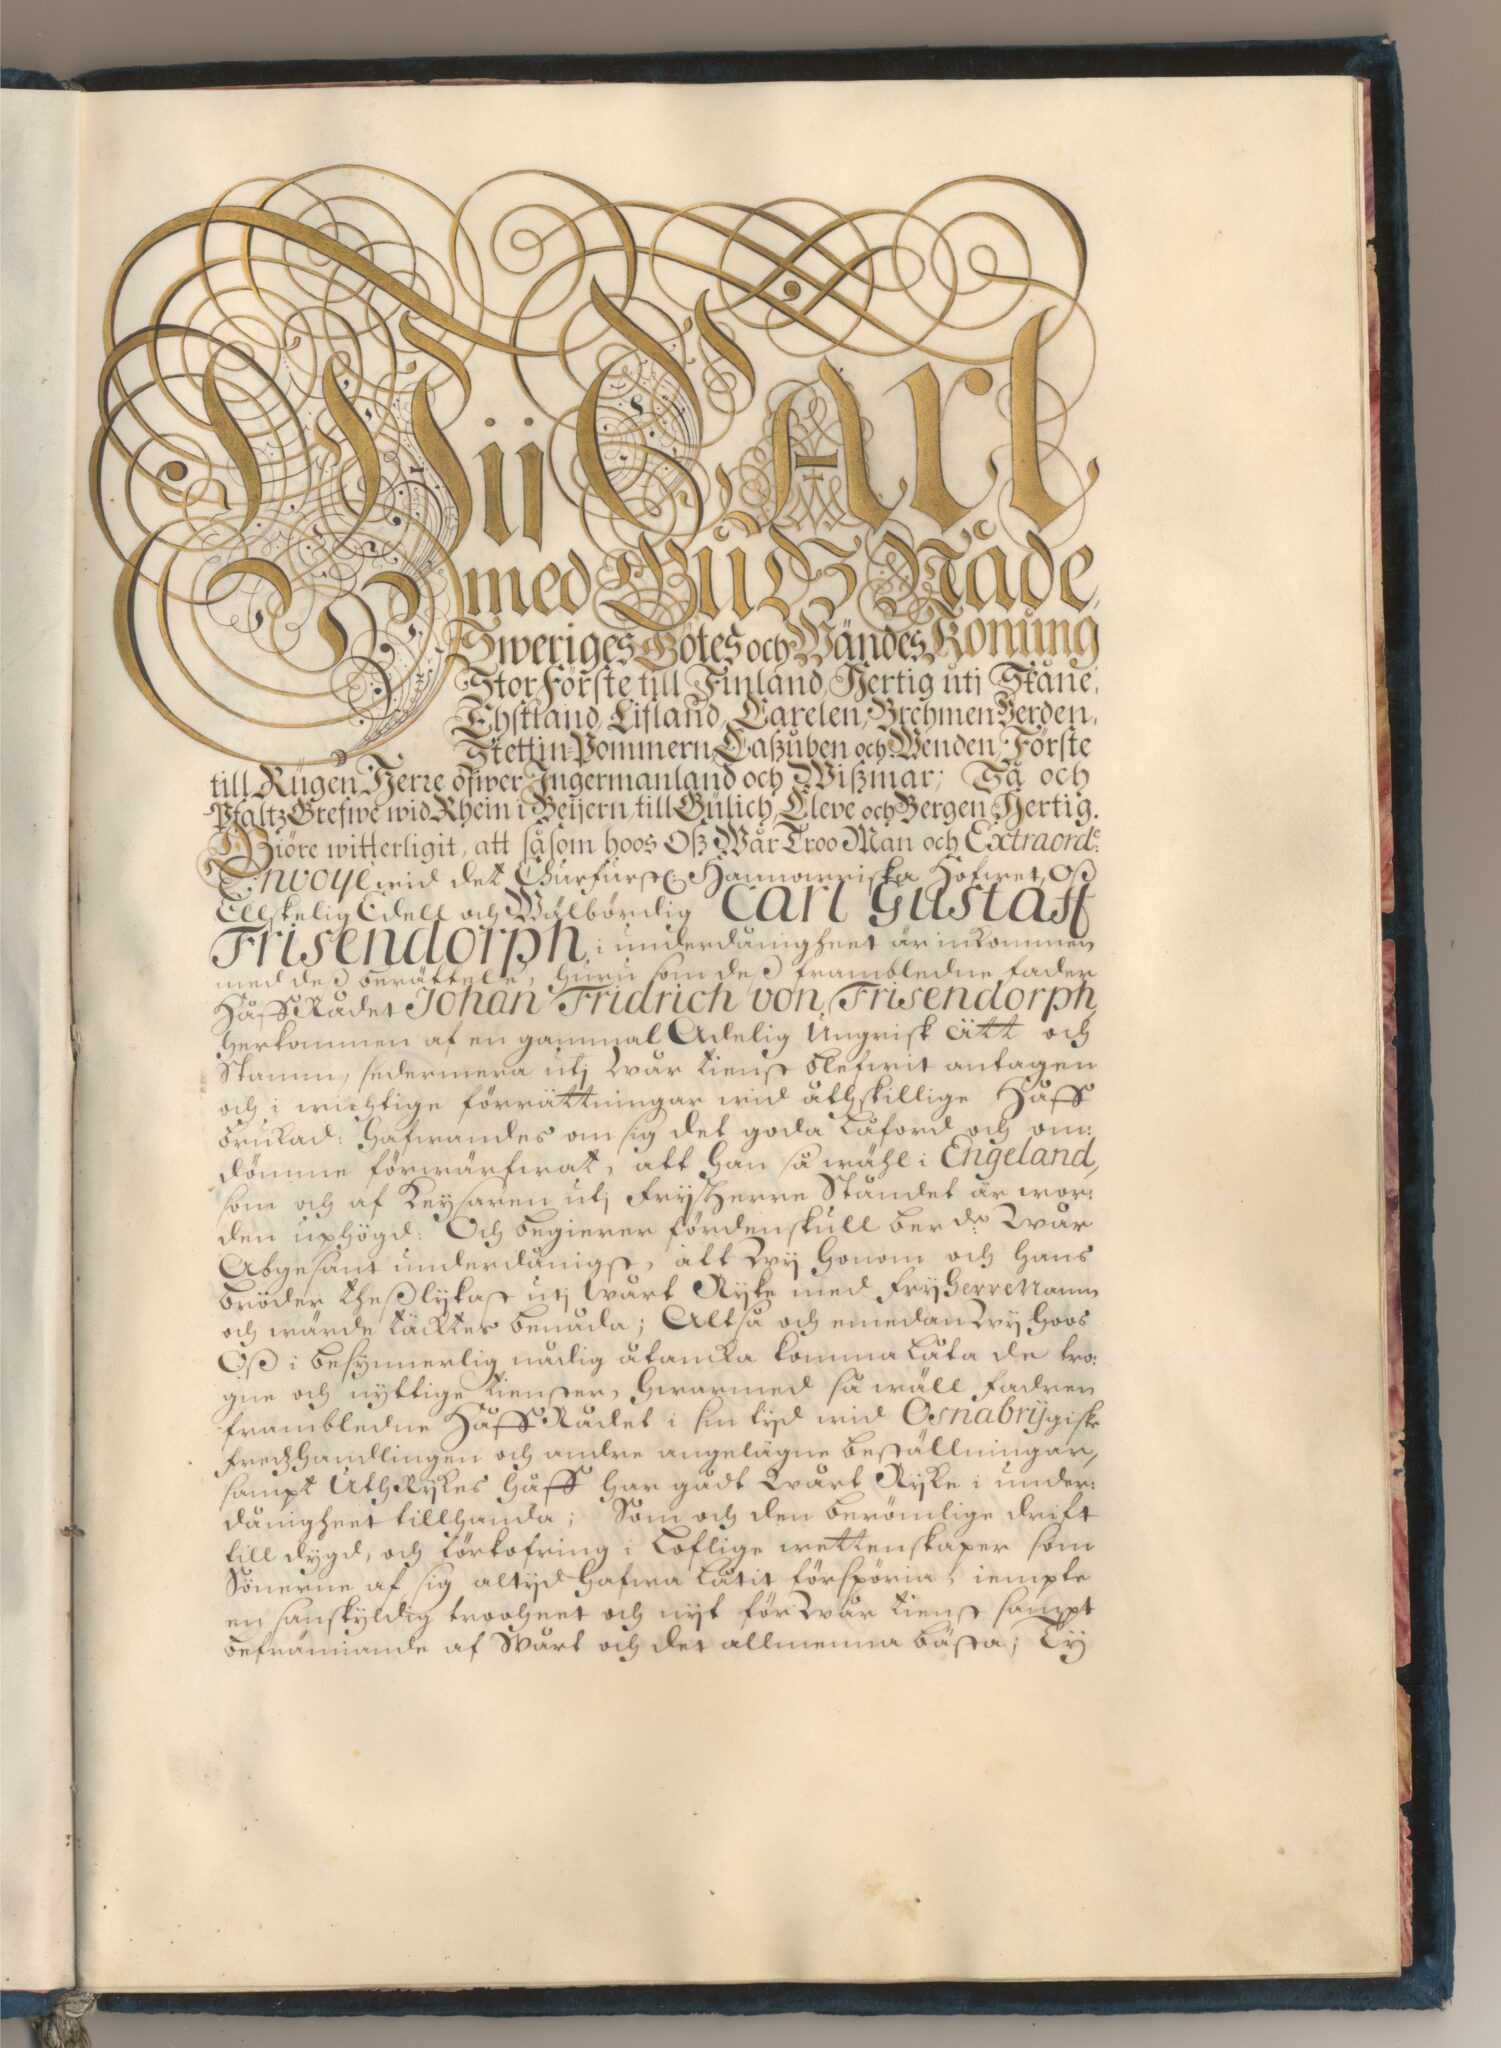 Wii Carl
med Gudz Nåde,
Sweriges Götes och Wändes Konung
Stor Förste till Finland, Hertig utj Skåne,
Ehstland, Lifland, Carelen, Brehmen Verden,
Stettin-Pommern, Caßuben och Wenden, Förste
till Rügen, Herre öfwer Ingermanland och Wißmar; Så och
Pfaltz Grefwe wid Rhein i Beijern, till Gülich, Cleve och Bergen Hertig.
Giöre witterligit, att såsom hoos Oß Wår Troo Man och Extraorde:
Envoye wid det Churfurstl: Hannowriska Hofwet, Oß
Elskelig Edell och Wälbördig Carl Gustaff
Frisendorph, i underdånigheet är inkommen
med deß berättelse, huru som deß frambledne fader
HåffRådet Johan Fridrich von Frisendorph
herkommen af en gammal Adelig Ungrisk ätt och
Stamm, sedermera utj Wår tienst blefwit antagen
och i wichtige förrättningar wid åthskillige Håff
brukad: hafwandes om sig det goda låford och om:
dömme förwärfwat, att han så wähl i Engeland,
som och af Keysaren utj FryHerre Ståndet är wor:
den uphögd: Och begierer fördenskull berde Wår
Abgesant underdånigst, att Wij honom och hans
bröder theßlykast utj Wårt Ryke med FryHerre Namn
och wärde täcktes benåda; Altså och emedan Wij hoos
Oß i besynnerlig nådig åtancka komma låta de tro:
gne och nyttige tienster, hwarmed så wäll fadren
frambledne HåffRådet i sin tijd wid Osnabrygiske
fredzhandlingen och andre angelägne beställningar,
sampt UthRykes håff har gådt Wårt Ryke i under:
dånigheet tillhanda; Som och den berömlige drift
till dygd, och förkofring i loflige wettenskaper som
Sönerne af sig altijd hafwa låtit förspöria, iempte
en sanskyldig trooheet och nyt för Wår tienst sampt
befrämiande af Wårt och det allmenna bästa; Ty